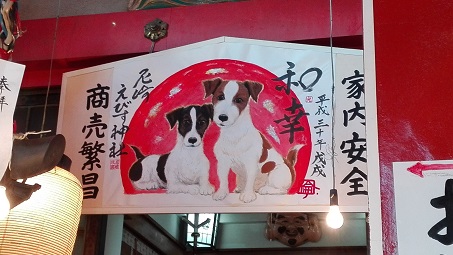 家内安全
平成三十年戊戌
和幸
尼崎
えびす神社
商売繁昌
奉拝